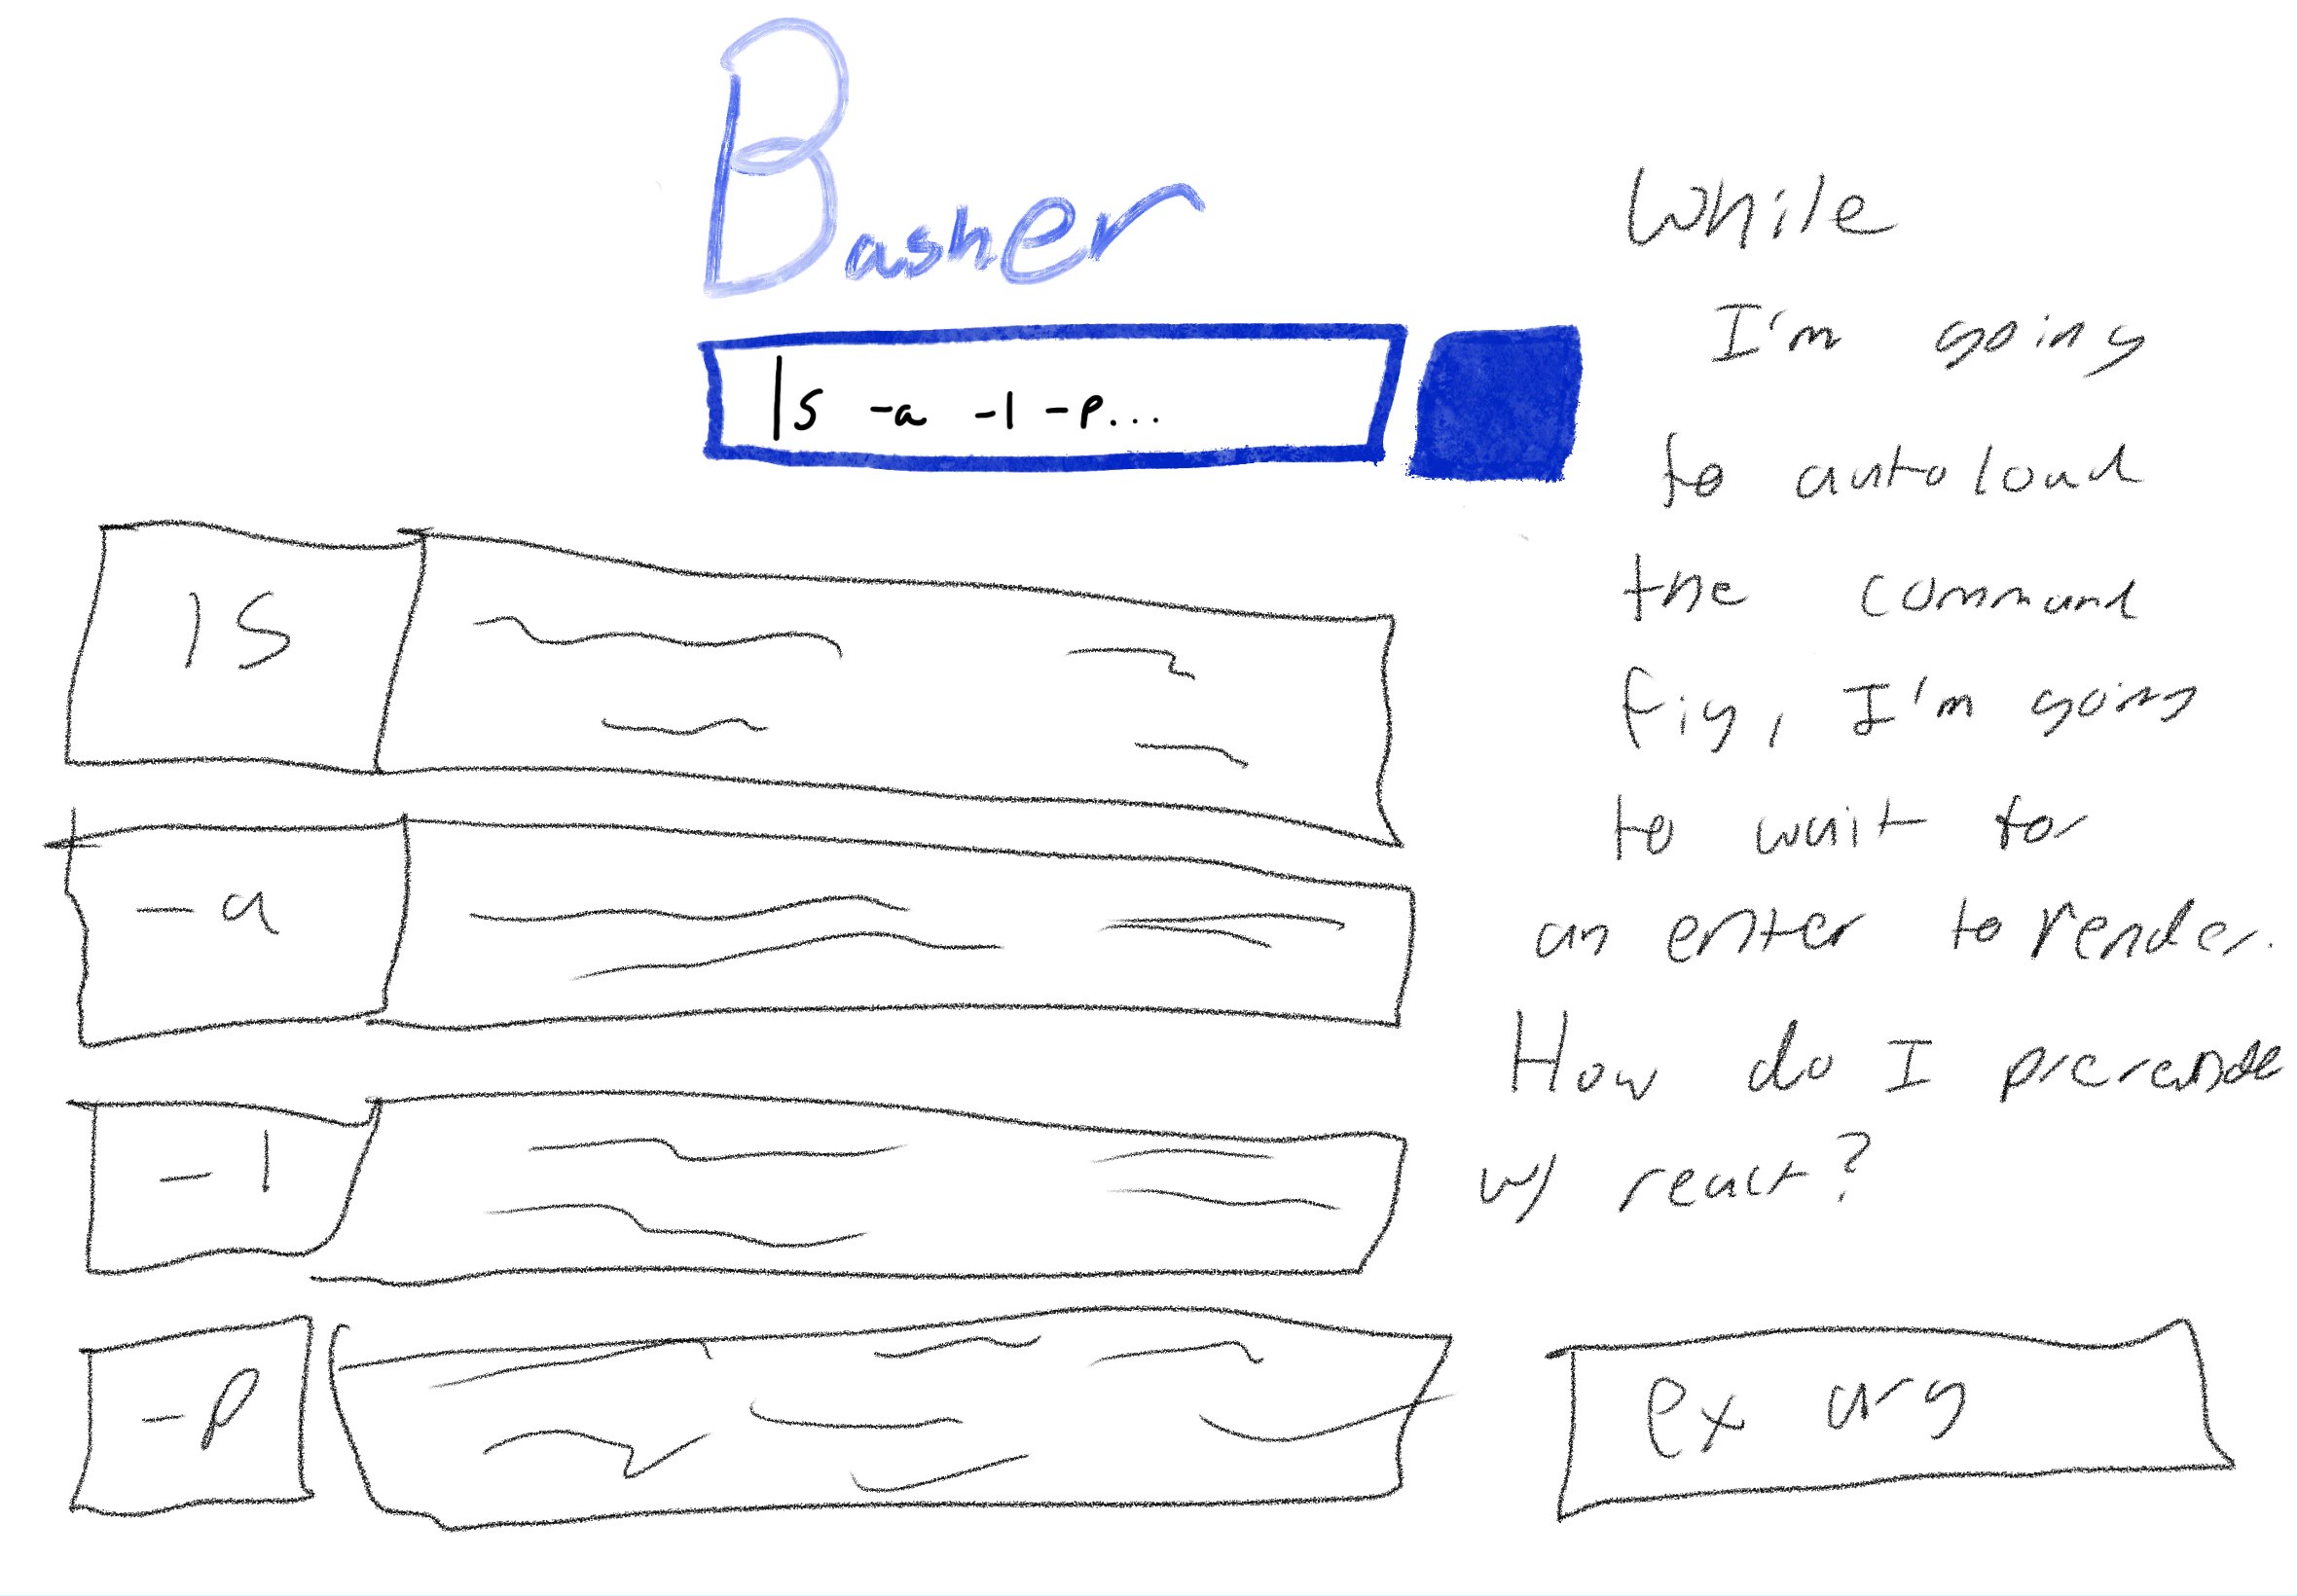 Basher
ls -a -l -p...
While
I'm going
to autoload
the command
fig, I'm going
to wait for
an enter to render.
How do I prerender
w/ react?
ls
-a
-l
-p
ex arg